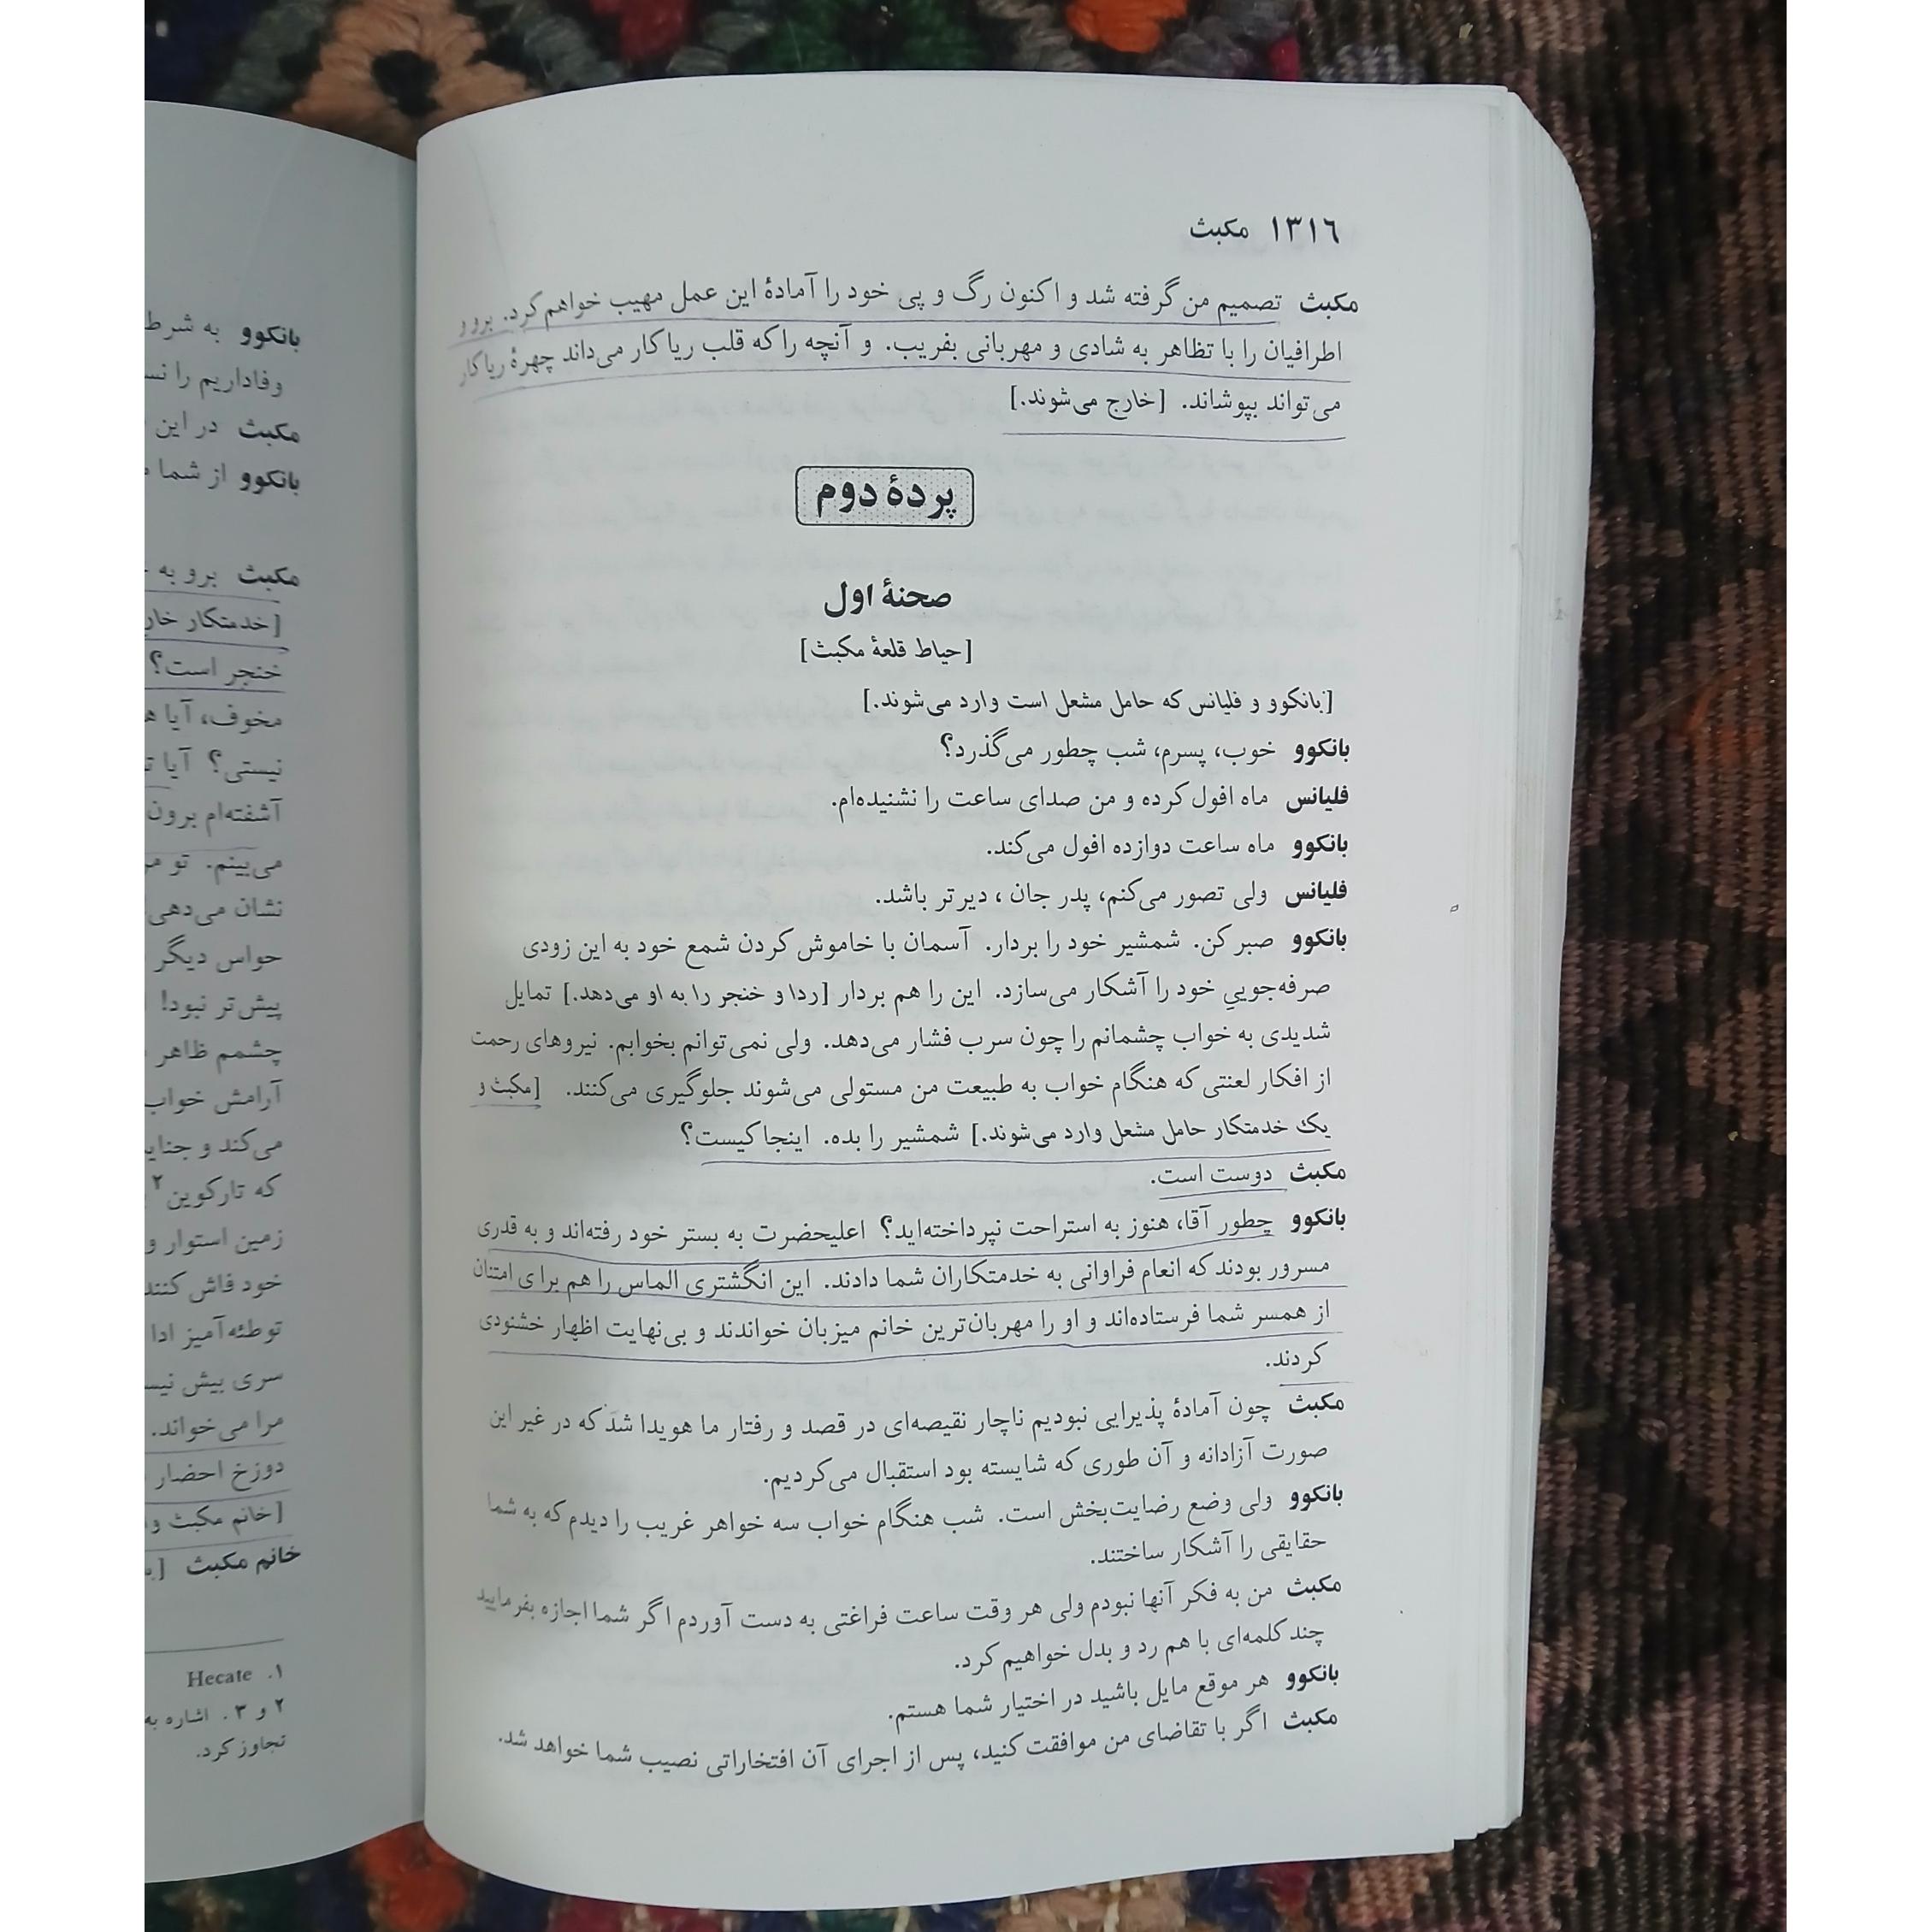 ۱۳۱۶ مکبث
مکبث تصمیم من گرفته شد و اکنون رگ و پی خود را آمادهٔ این عمل مهیب خواهم کرد. برو و
اطرافیان را با تظاهر به شادی و مهربانی بفریب. و آنچه را که قلب ریاکار می‌داند چهرهٔ ریاکار
می‌تواند بپوشاند. [خارج می‌شوند.]
پردهٔ دوم
صحنهٔ اول
[حیاط قلعهٔ مکبث]
[بانکوو و فلیانس که حامل مشعل است وارد می‌شوند.]
بانکوو خوب، پسرم، شب چطور می‌گذرد؟
فلیانس ماه افول کرده و من صدای ساعت را نشنیده‌ام.
بانکوو ماه ساعت دوازده افول می‌کند.
فلیانس ولی تصور می‌کنم، پدر جان، دیرتر باشد.
بانکوو صبر کن. شمشیر خود را بردار. آسمان با خاموش کردن شمع خود به این زودی
صرفه‌جویی خود را آشکار می‌سازد. این را هم بردار [ردا و خنجر را به او می‌دهد.] تمایل
شدیدی به خواب چشمانم را چون سرب فشار می‌دهد. ولی نمی‌توانم بخوابم. نیروهای رحمت
از افکار لعنتی که هنگام خواب به طبیعت من مستولی می‌شوند جلوگیری می‌کنند. [مکبث و
یک خدمتکار حامل مشعل وارد می‌شوند.] شمشیر را بده. اینجا کیست؟
مکبث دوست است.
بانکوو چطور آقا، هنوز به استراحت نپرداخته‌اید؟ اعلیحضرت به بستر خود رفته‌اند و به قدری
مسرور بودند که انعام فراوانی به خدمتکاران شما دادند. این انگشتری الماس را هم برای امتنان
از همسر شما فرستاده‌اند و او را مهربان‌ترین خانم میزبان خواندند و بی‌نهایت اظهار خشنودی
کردند.
مکبث چون آمادهٔ پذیرایی نبودیم ناچار نقیصه‌ای در قصد و رفتار ما هویدا شد که در غیر این
صورت آزادانه و آن طوری که شایسته بود استقبال می‌کردیم.
بانکوو ولی وضع رضایت‌بخش است. شب هنگام خواب سه خواهر غریب را دیدم که به شما
حقایقی را آشکار ساختند.
مکبث من به فکر آنها نبودم ولی هر وقت ساعت فراغتی به دست آوردم اگر شما اجازه بفرمایید
چند کلمه‌ای با هم رد و بدل خواهیم کرد.
بانکوو هر موقع مایل باشید در اختیار شما هستم.
مکبث اگر با تقاضای من موافقت کنید، پس از اجرای آن افتخاراتی نصیب شما خواهد شد.
بانکوو به شرط
وفاداریم را
مکبث در این
بانکوو از شما
مکبث برو به
[خدمتکار
خنجر است؟
مخوف، آیا
نیستی؟ آیا
آشفته‌ام برون
می‌بینم. تو
نشان می‌دهی
حواس دیگر
پیش‌تر نبود!
چشمم ظاهر
آرامش خواب
می‌کند و
که تارکوین۲
زمین استوار و
خود فاش کنند
توطئه‌آمیز ادا
سری بیش
مرا می‌خواند.
دوزخ احضار
[خانم مکبث
خانم مکبث
۱. Hecate
۲ و ۳. اشاره به
تجاوز کرد.